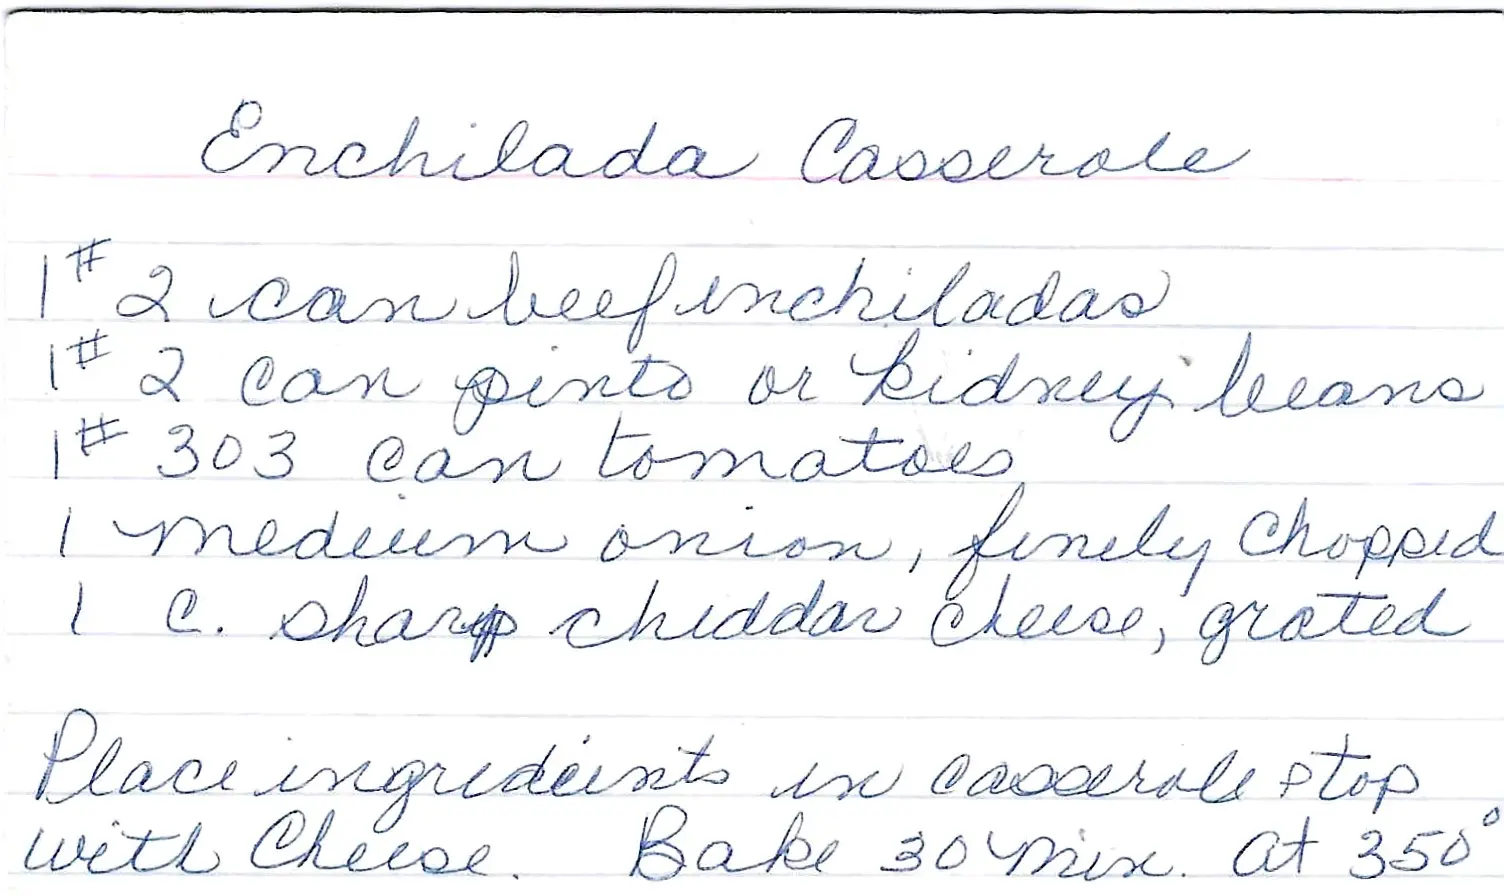 Enchilada Casserole
1 # 2 can beef enchiladas
1 # 2 can pinto or kidney beans
1 # 303 can tomatoes
1 medium onion, finely chopped
1 c. sharp cheddar cheese, grated
Place ingredients in casserole + top
with cheese. Bake 30 min. at 350°